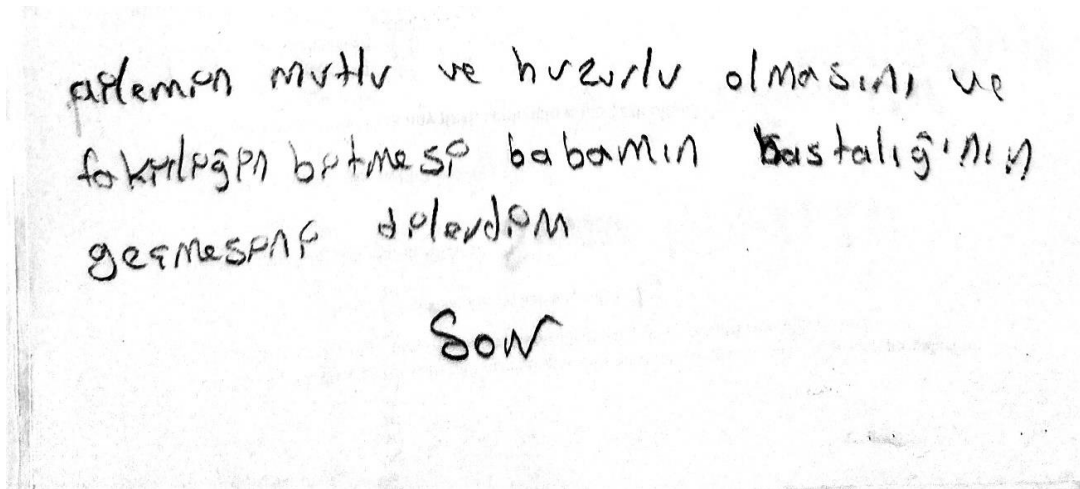 ailemin mutlu ve huzurlu olmasını ve
fakirliğin bitmesi babamın hastalığ'ının
geçmesini dilerdim
Son